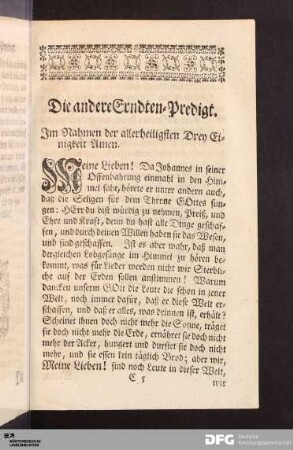 Die andere Erndten-Predigt.
Im Nahmen der allerheiligsten Drey Ei-
nigkeit Amen.
Meine Lieben! Da Johannes in seiner
Offenbahrung einmahl in den Him-
mel sahe, hörete er unter andern auch,
daß die Seligen für dem Throne GOttes sun-
gen: HErr du bist würdig zu nehmen, Preiß, und
Ehre und Kraft, denn du hast alle Dinge geschaf-
fen, und durch deinen Willen haben sie das Wesen,
und sind geschaffen. Ist es aber wahr, daß man
dergleichen Lobgesänge im Himmel zu hören be-
kommt, was für Lieder werden nicht wir Sterbli-
che auf der Erden sollen anstimmen! Warum
dancken unserm GOtt die Leute die schon in jener
Welt, noch immer dafür, daß er diese Welt er-
schaffen, und daß er alles, was drinnen ist, erhält?
Scheinet ihnen doch nicht mehr die Sonne, träget
sie doch nicht mehr die Erde, ernähret sie doch nicht
mehr der Acker, hungert und durstet sie doch nicht
mehr, und sie essen kein täglich Brod; aber wir,
Meine Lieben! sind noch Leute in dieser Welt,
C 5
wir
WÜRTTEMBERGISCHE
LANDESBIBLIOTHEK
DFG Deutsche
Forschungsgemeinschaft